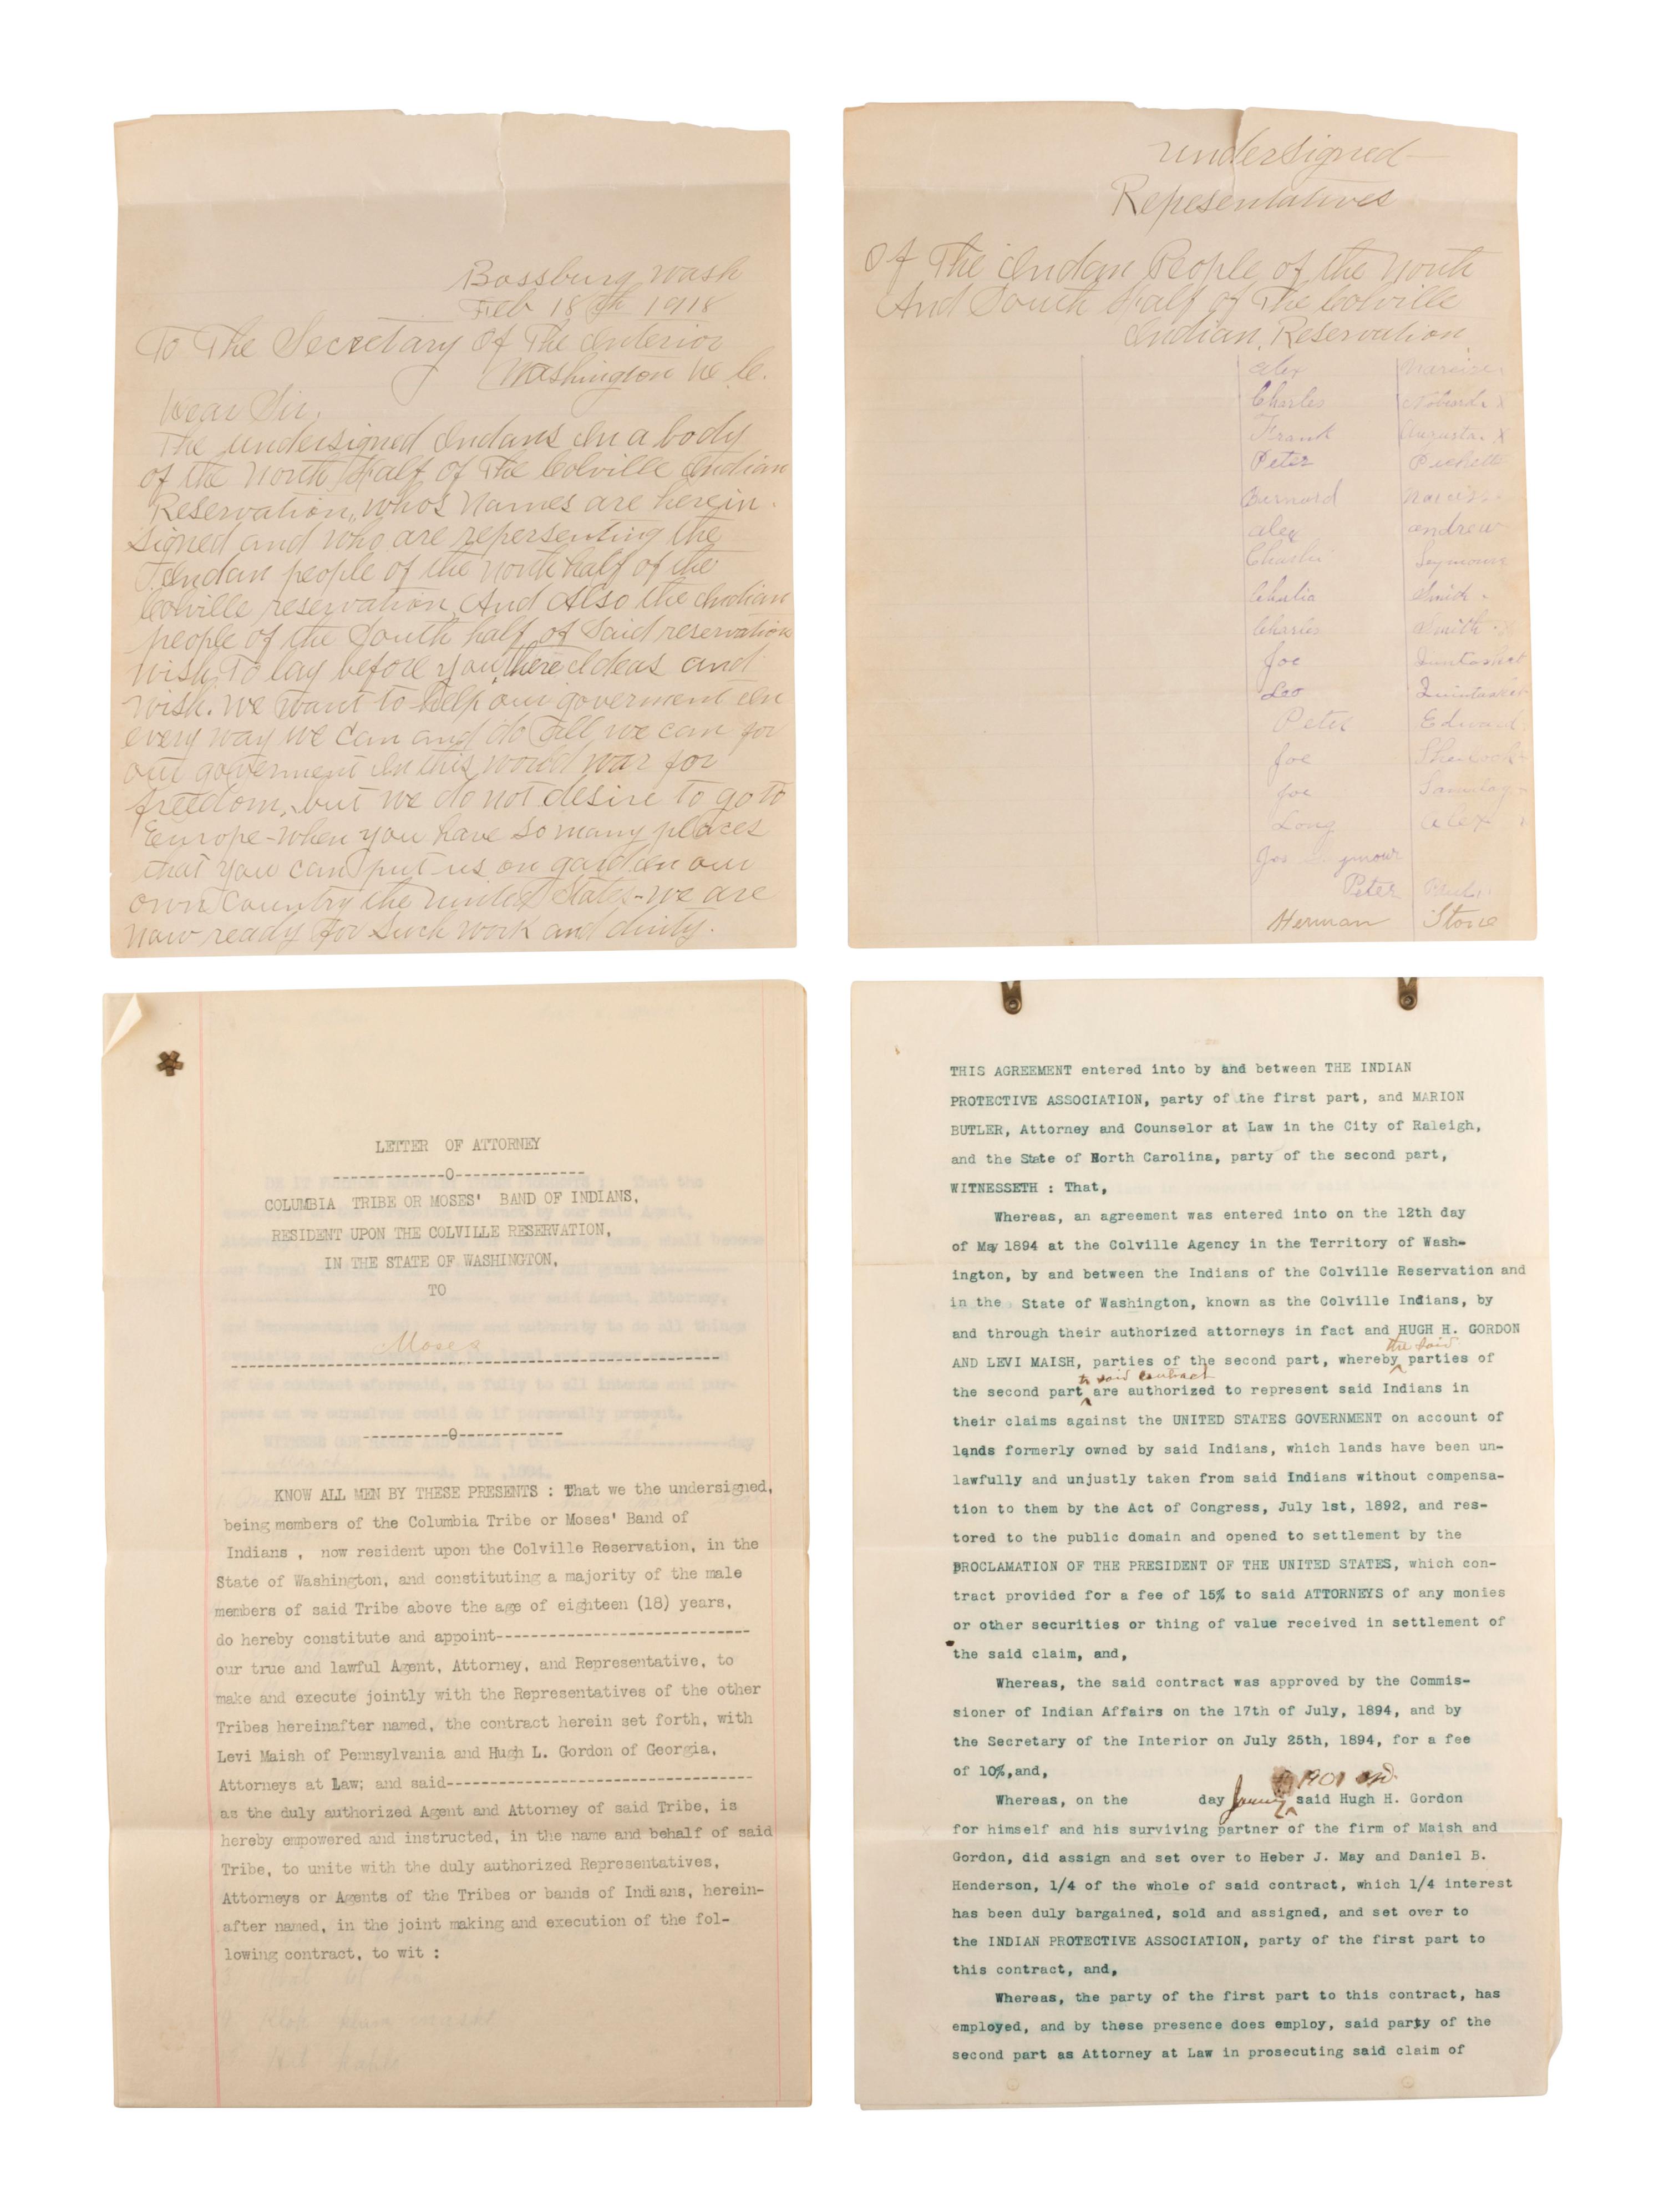 Bossburg Wash
Feb 18th 1918
To The Secretary Of The Interior
Washington D.C.
Dear Sir.
The undersigned Indans In a body
of the North Half of The Colville Indian
Reservation, whos Names are herein
signed and who are repersenting the
Indan people of the north half of the
Colville reservation, And Also the Indian
people of the South half of Said reservation
wish To lay before you there Ideas and
wish. We want to help our goverment In
every way we can and do all we can for
our goverment In this world war for
freedom, but we do not desire to go to
Europe - When you have so many places
that you can put us on gard In our
own Country the United States - we are
now ready for such work and duity.
undersigned
Repesentatives
Of The Indan People of the North
And South Half of The Colville
Indian Reservation
Alex
Charles X
Frank Augusta X
Peter
Bernard
Alex Andrew
Charlie Seymour
Charlie
Charles Smith
Joe
Leo Quintasket
Peter Edward
Joe
Joe
Long Alex
Jos Seymour
Peter
Herman Stone
LETTER OF ATTORNEY
-------------0---------------
COLUMBIA TRIBE OR MOSES' BAND OF INDIANS,
RESIDENT UPON THE COLVILLE RESERVATION,
IN THE STATE OF WASHINGTON,
TO
Moses
----------0------------
KNOW ALL MEN BY THESE PRESENTS : That we the undersigned,
being members of the Columbia Tribe or Moses' Band of
Indians , now resident upon the Colville Reservation, in the
State of Washington, and constituting a majority of the male
members of said Tribe above the age of eighteen (18) years,
do hereby constitute and appoint-----------------------------
our true and lawful Agent, Attorney, and Representative, to
make and execute jointly with the Representatives of the other
Tribes hereinafter named, the contract herein set forth, with
Levi Maish of Pennsylvania and Hugh L. Gordon of Georgia,
Attorneys at Law; and said-----------------------------------
as the duly authorized Agent and Attorney of said Tribe, is
hereby empowered and instructed, in the name and behalf of said
Tribe, to unite with the duly authorized Representatives,
Attorneys or Agents of the Tribes or bands of Indians, herein-
after named, in the joint making and execution of the fol-
lowing contract, to wit :
THIS AGREEMENT entered into by and between THE INDIAN
PROTECTIVE ASSOCIATION, party of the first part, and MARION
BUTLER, Attorney and Counselor at Law in the City of Raleigh,
and the State of North Carolina, party of the second part,
WITNESSETH : That,
Whereas, an agreement was entered into on the 12th day
of May 1894 at the Colville Agency in the Territory of Wash-
ington, by and between the Indians of the Colville Reservation and
in the State of Washington, known as the Colville Indians, by
and through their authorized attorneys in fact and HUGH H. GORDON
the said
AND LEVI MAISH, parties of the second part, whereby parties of
to said contract
the second part are authorized to represent said Indians in
their claims against the UNITED STATES GOVERNMENT on account of
lands formerly owned by said Indians, which lands have been un-
lawfully and unjustly taken from said Indians without compensa-
tion to them by the Act of Congress, July 1st, 1892, and res-
tored to the public domain and opened to settlement by the
PROCLAMATION OF THE PRESIDENT OF THE UNITED STATES, which con-
tract provided for a fee of 15% to said ATTORNEYS of any monies
or other securities or thing of value received in settlement of
the said claim, and,
Whereas, the said contract was approved by the Commis-
sioner of Indian Affairs on the 17th of July, 1894, and by
the Secretary of the Interior on July 25th, 1894, for a fee
of 10%,and,
1901
Whereas, on the day said Hugh H. Gordon
for himself and his surviving partner of the firm of Maish and
Gordon, did assign and set over to Heber J. May and Daniel B.
Henderson, 1/4 of the whole of said contract, which 1/4 interest
has been duly bargained, sold and assigned, and set over to
the INDIAN PROTECTIVE ASSOCIATION, party of the first part to
this contract, and,
Whereas, the party of the first part to this contract, has
employed, and by these presence does employ, said party of the
second part as Attorney at Law in prosecuting said claim of